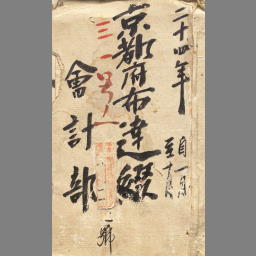 二十四年
自一月
至十月
京都府布達綴
三一号ノ
會計部
一號